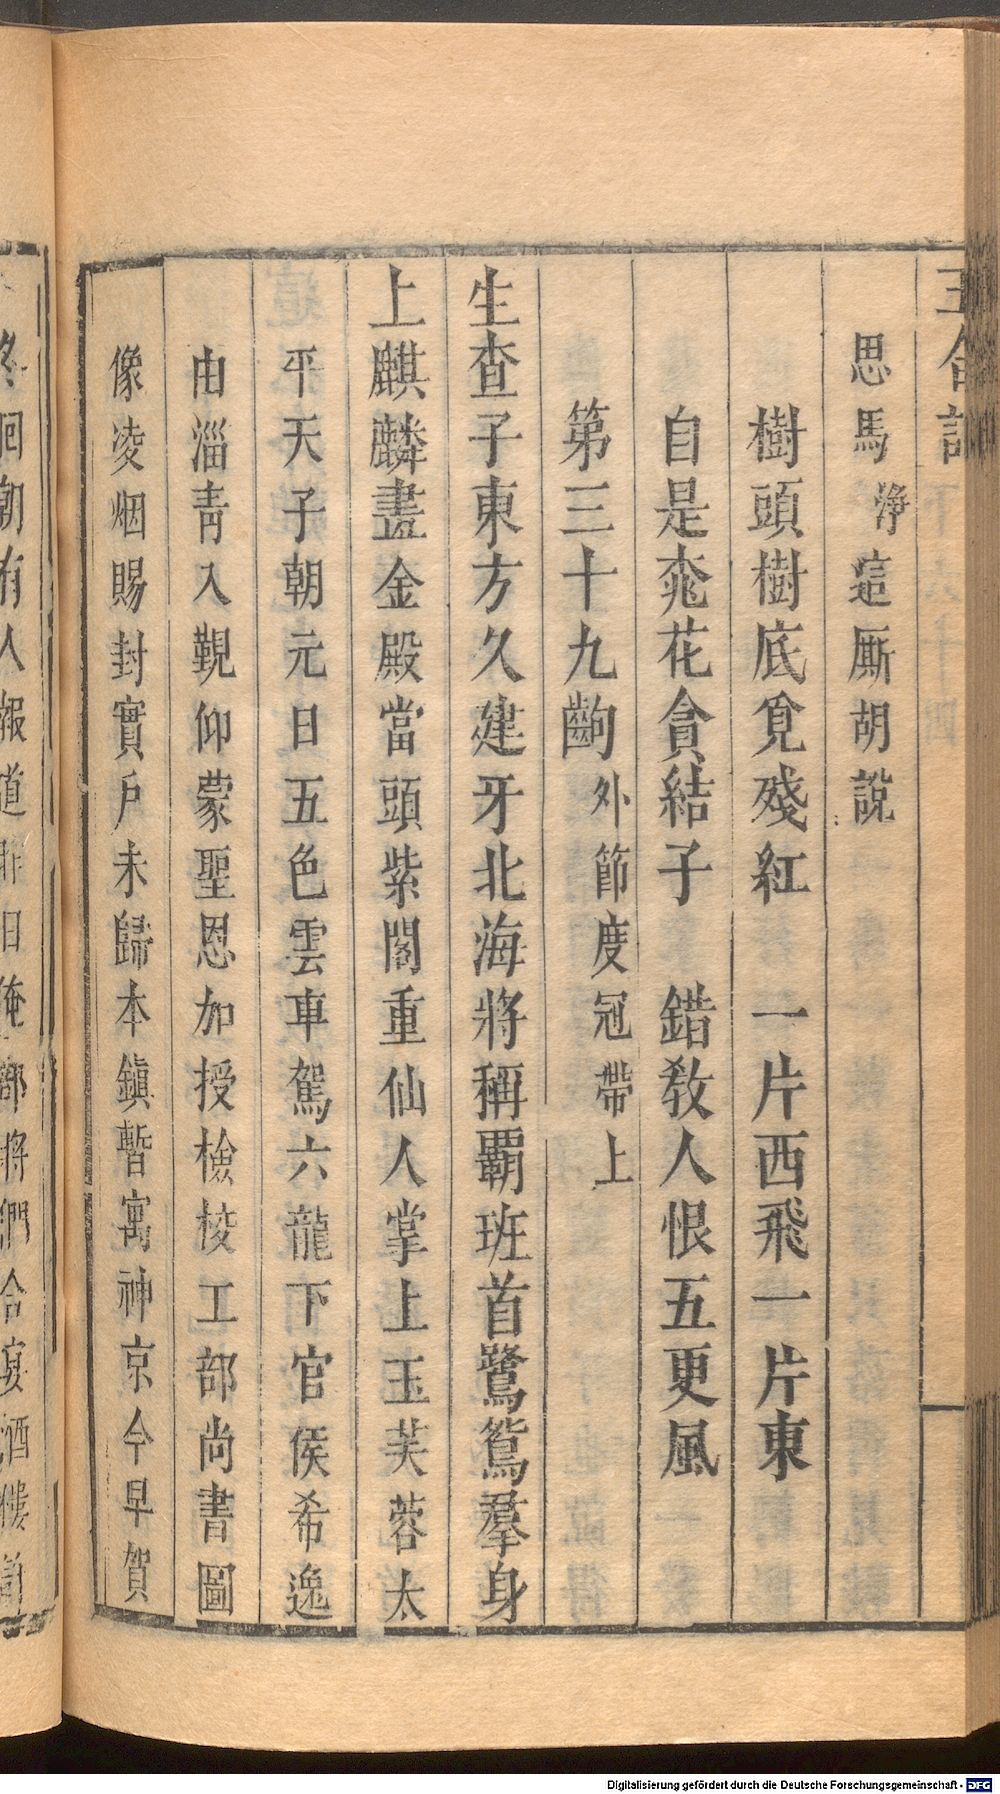 玉合記
思馬淨這厮胡説
樹頭樹底覓殘紅　一片西飛一片東
自是桃花貪結子　錯教人恨五更風
第三十九齣外節度冠帶上
生查子東方久建牙北海將稱覇班首鷺鴛羣身
上麒麟畫金殿當頭紫閣重仙人掌上玉芙蓉太
平天子朝元日五色雲車駕六龍下官侯希逸
由淄青入覲仰蒙聖恩加授檢校工部尚書圖
像凌烟賜封實戶未歸本鎮暫寓神京今早賀
回朝有人報道昨日俺部將們合宴酒樓
Digitalisierung gefördert durch die Deutsche Forschungsgemeinschaft - DFG